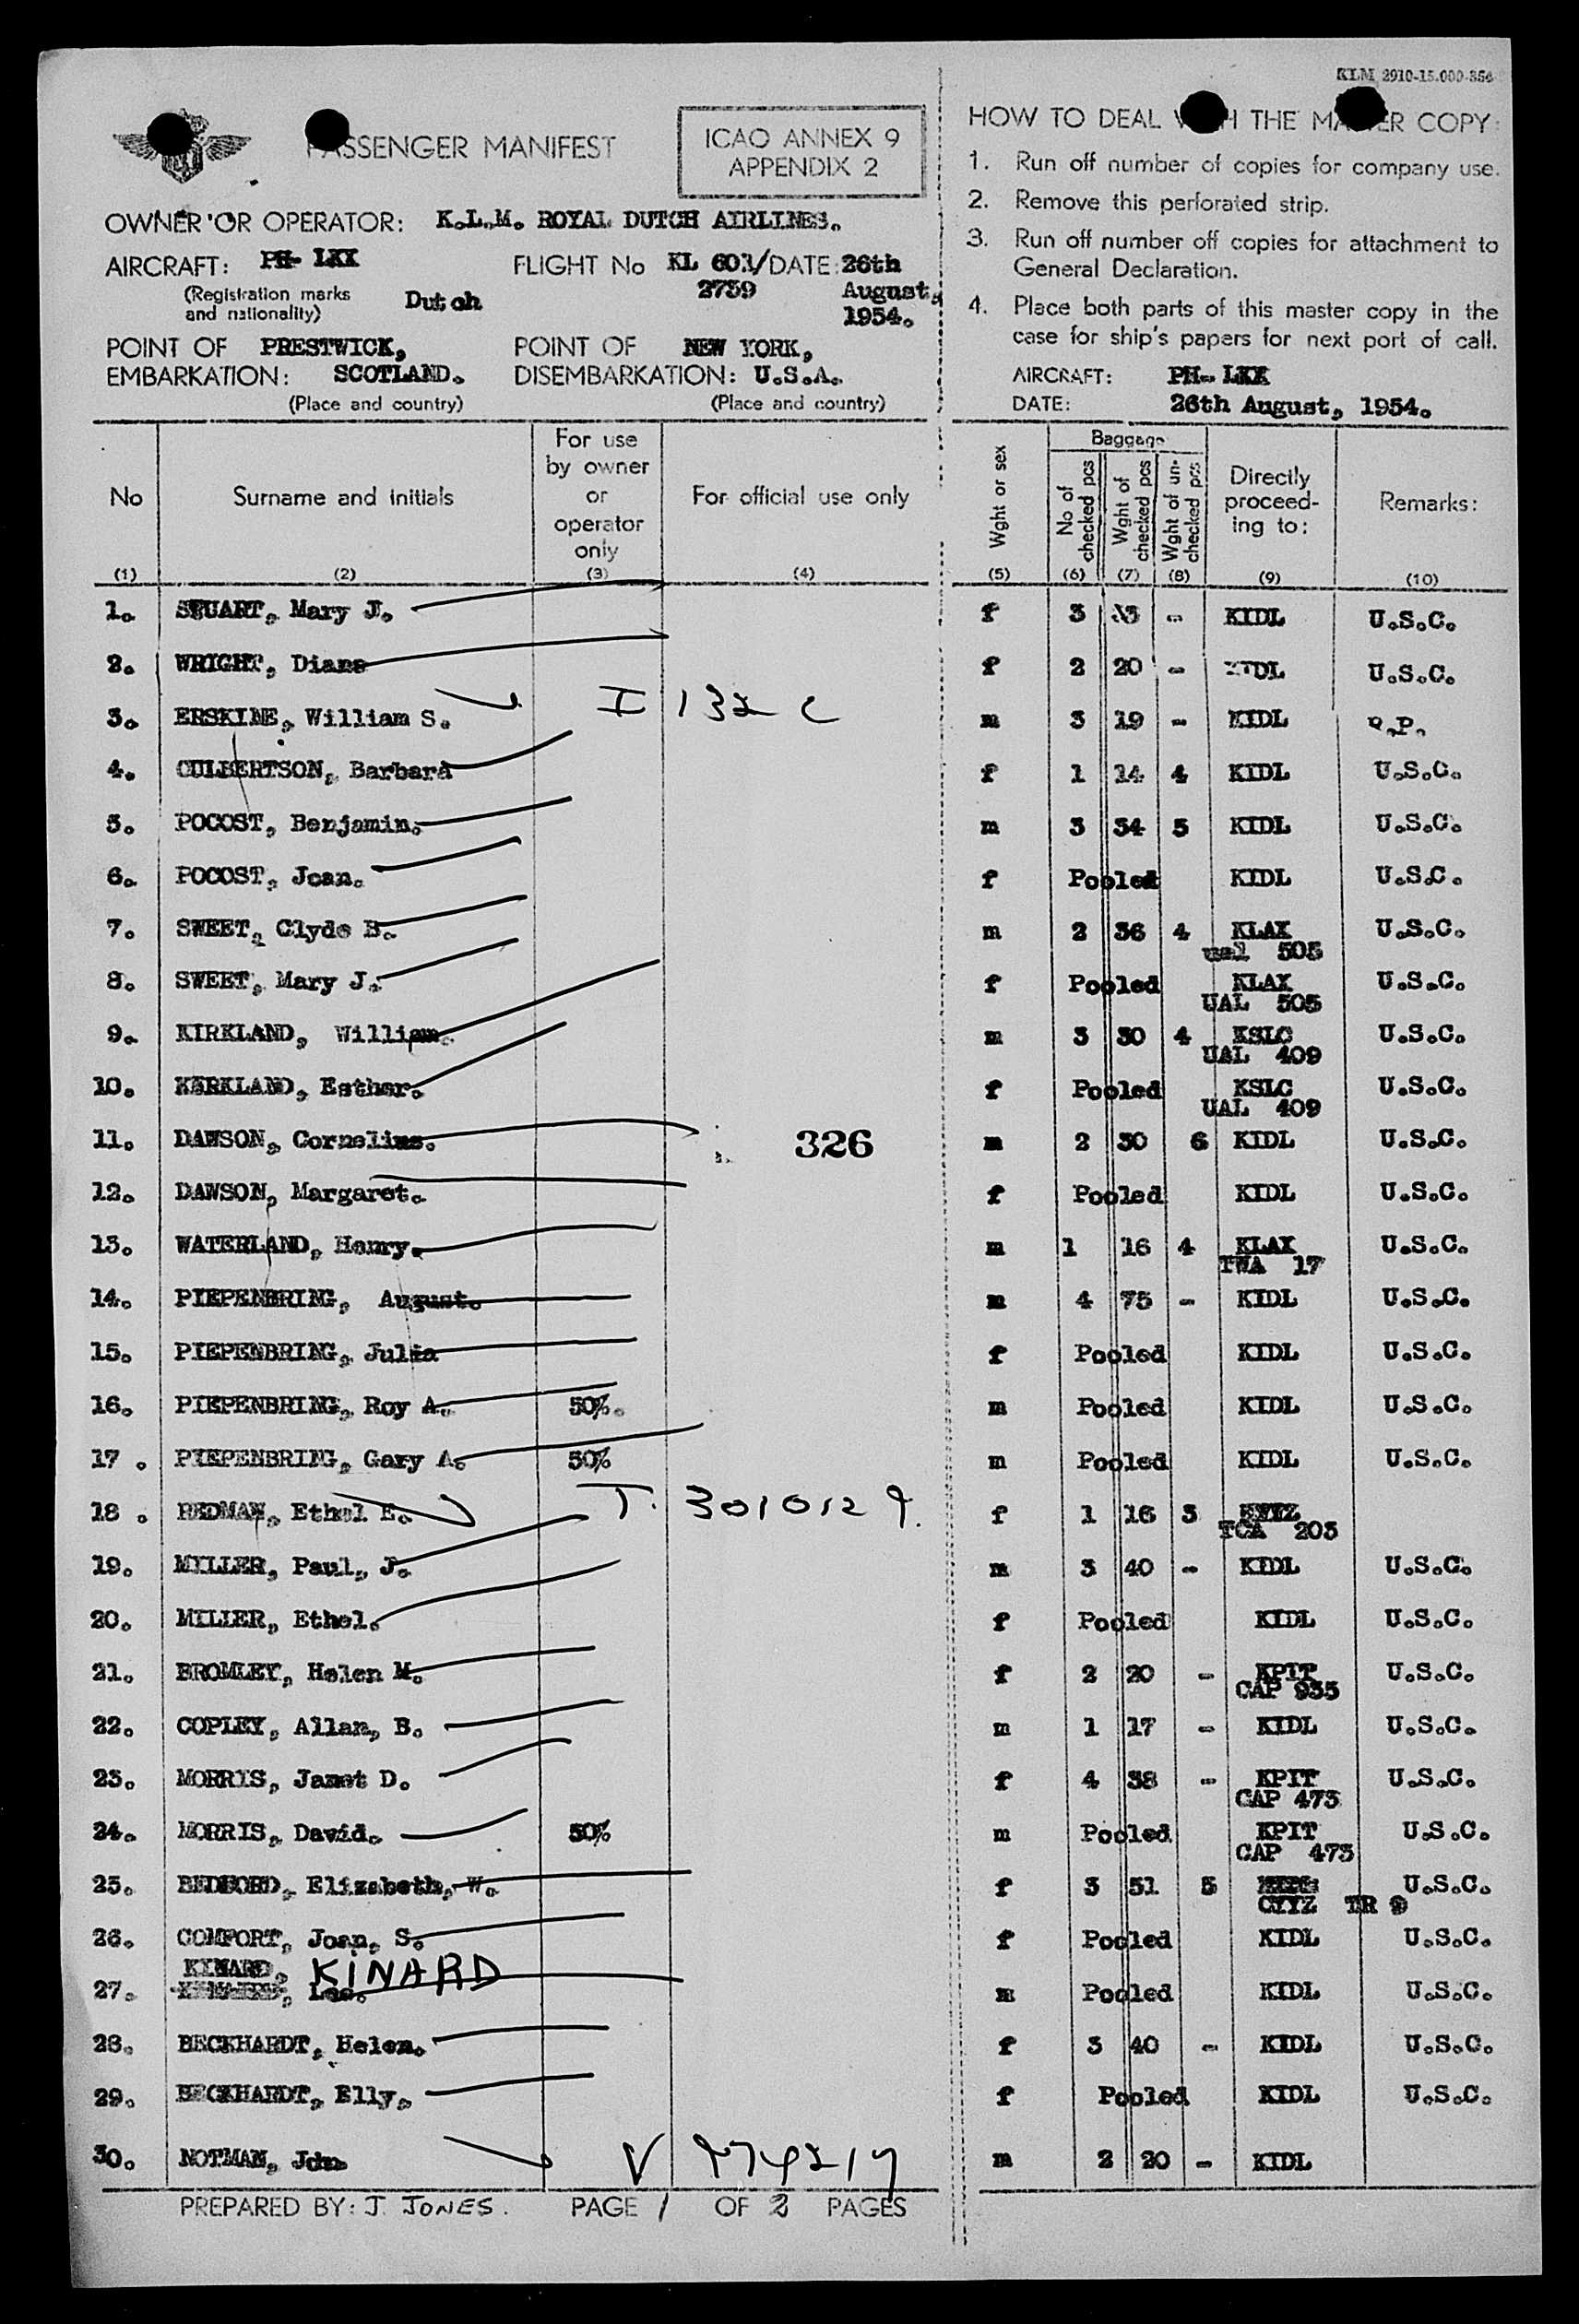 KLM 2910-15.000-354
PASSENGER MANIFEST
ICAO ANNEX 9
APPENDIX 2
OWNER OR OPERATOR: K.L.M. ROYAL DUTCH AIRLINES.
AIRCRAFT: PH- LKX
FLIGHT No KL 601/ DATE: 26th
(Registration marks and nationality) Dutch 2759 August, 1954.
POINT OF EMBARKATION: PRESTWICK, SCOTLAND.
(Place and country)
POINT OF DISEMBARKATION: NEW YORK, U.S.A.
(Place and country)
HOW TO DEAL WITH THE MASTER COPY:
1. Run off number of copies for company use.
2. Remove this perforated strip.
3. Run off number off copies for attachment to
General Declaration.
4. Place both parts of this master copy in the
case for ship's papers for next port of call.
AIRCRAFT: PH- LKX
DATE: 26th August, 1954.
No Surname and initials For use by owner or operator only For official use only Wght or sex Baggage No of checked pcs Wght of checked pcs Wght of un- checked pcs Directly proceed- ing to: Remarks:
(1) (2) (3) (4) (5) (6) (7) (8) (9) (10)
1. STUART, Mary J. f 3 - KIDL U.S.C.
2. WRIGHT, Diane f 2 20 - KIDL U.S.C.
3. ERSKINE, William S. I 132 C m 3 19 - KIDL
4. CULBERTSON, Barbara f 1 14 4 KIDL U.S.C.
5. POCOST, Benjamin. m 3 34 5 KIDL U.S.C.
6. POCOST, Joan. f Pooled KIDL U.S.C.
7. SWEET, Clyde B. m 2 36 4 KLAX U.S.C.
ual 505
8. SWEET, Mary J. f Pooled KLAX U.S.C.
UAL 505
9. KIRKLAND, William. m 3 30 4 KSLC U.S.C.
UAL 409
10. KERKLAND, Esther. f Pooled KSLC U.S.C.
UAL 409
11. DAWSON, Cornelius. 326 m 2 30 6 KIDL U.S.C.
12. DAWSON, Margaret. f Pooled KIDL U.S.C.
13. WATERLAND, Henry. m 1 16 4 KLAX U.S.C.
TWA 17
14. PIEPENBRING, August. m 4 75 - KIDL U.S.C.
15. PIEPENBRING, Julia f Pooled KIDL U.S.C.
16. PIEPENBRING, Roy A. 50%. m Pooled KIDL U.S.C.
17 . PIEPENBRING, Gary A. 50% m Pooled KIDL U.S.C.
18 . REDMAN, Ethel E. T. 3010129. f 1 16 3
TCA 203
19. MILLER, Paul, J. m 3 40 - KIDL U.S.C.
20. MILLER, Ethel. f Pooled KIDL U.S.C.
21. BROMLEY, Helen M. f 2 20 - KPIT U.S.C.
CAP 935
22. COPLEY, Allan, B. m 1 17 - KIDL U.S.C.
23. MORRIS, Janet D. f 4 38 - KPIT U.S.C.
CAP 473
24. MORRIS, David. 50% m Pooled KPIT U.S.C.
CAP 473
25. BEDFORD, Elizabeth, W. f 3 51 5 U.S.C.
CYYZ TR 9
26. COMFORT, Joan, S. f Pooled KIDL U.S.C.
KINARD, KINARD
27. Lee. m Pooled KIDL U.S.C.
28. BECKHARDT, Helen. f 3 40 - KIDL U.S.C.
29. BECKHARDT, Elly. f Pooled KIDL U.S.C.
30. NOTMAN, John m 2 20 - KIDL
PREPARED BY: J. JONES. PAGE 1 OF 2 PAGES